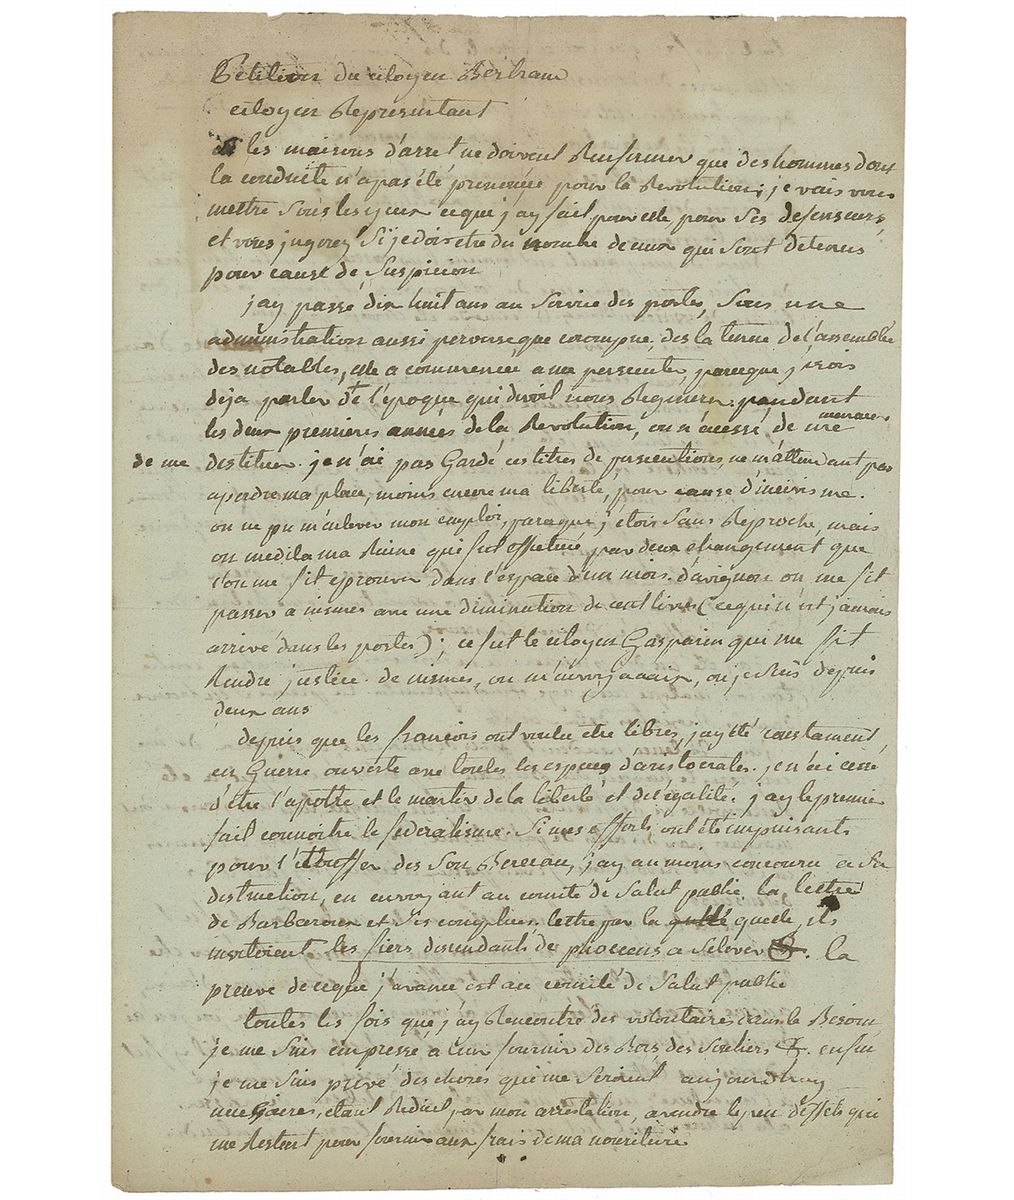 Pétition du citoyen Bertram
citoyen Représentant
les maisons d'arret ne doivent Renfermer que des hommes dont
la conduite n'a pas été prononcée pour la Révolution; je vais vous
mettre sous les yeux ce que j'ay fait pour elle, pour ses defenseurs,
et vous jugerez si je dois etre du nombre de ceux qui sont détenus
pour cause de suspicion
j'ay passé dix huit ans au service des postes, sous une
administration aussi perverse que corompue, des la tenue de l'assemblée
des notables, elle a commencée a me persecuter, parceque j'osois
déja parler de l'époque qui devoit nous Régénérer. pendant
les deux premieres années de la Révolution, on n'a cessé de me menacer
de me destituer. je n'ai pas Gardé ces titres de persecutions, ne m'attendant pas
a perdre ma place, moins encore ma liberté, pour cause d'incivisme.
on ne pu m'enlever mon emploi, parceque j'etois sans Reproche, mais
on medita ma Ruine qui fut effectuée par deux changement que
l'on me fit eprouver dans l'espace d'un mois. d'avignon on me fit
passer a nismes avec une diminution de cent livres (ce qui n'est jamais
arrivé dans les postes); ce fut le citoyen Gasparin qui me fit
Rendre justice. de nismes, on m'envoya a aix, ou je suis depuis
deux ans
depuis que les françois ont voulu etre libres, j'ay été constament
en Guerre ouverte avec toutes les especes d'aristocrates. je n'ai cessé
d'être l'apotre et le martir de la liberté et de l'égalité. j'ay le premier
fait connoitre le federalisme. Si mes efforts ont été impuisants
pour l'étouffer des son Berceau, j'ay au moins concouru a sa
destruction, en envoyant au comité de Salut public la lettre
de Barbaroux et ses complices, lettre par la quelle ils
invitoient les fiers descendants de phoceens a s'elever. la
preuve de ce que j'avance est au comité de Salut public
toutes les fois que j'ay Rencontré des volontaires dans le Besoin,
je me suis empressé a leur fournir des Bas des souliers &. enfin
je me suis privé des choses qui me seroient aujourdhuy
necessaires, etant Reduit, par mon arrestation, a vendre le peu d'effets qui
me Restent pour fournir aux frais de ma nouriture